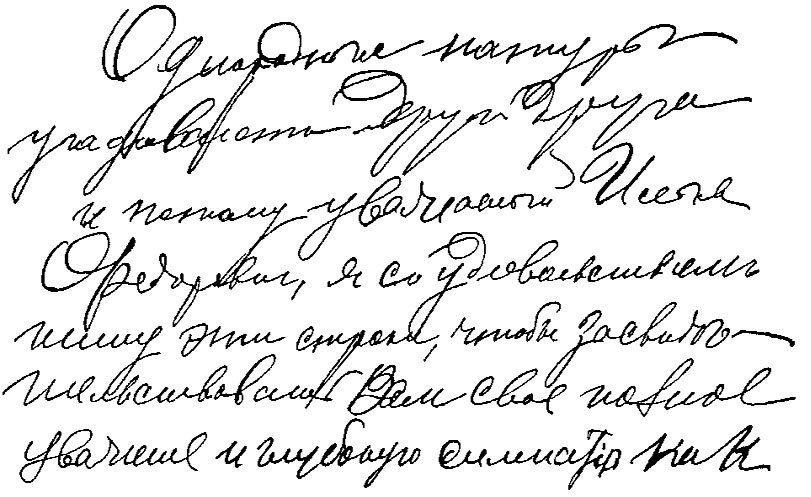 Однородные натуры
угадывают друг друга
и потому уважаемый
Федорович, я со удовольствием
пишу эти строки, чтобы засвидѣ-
тельствовать Вам свое полное
уважение и глубокую симпатію как